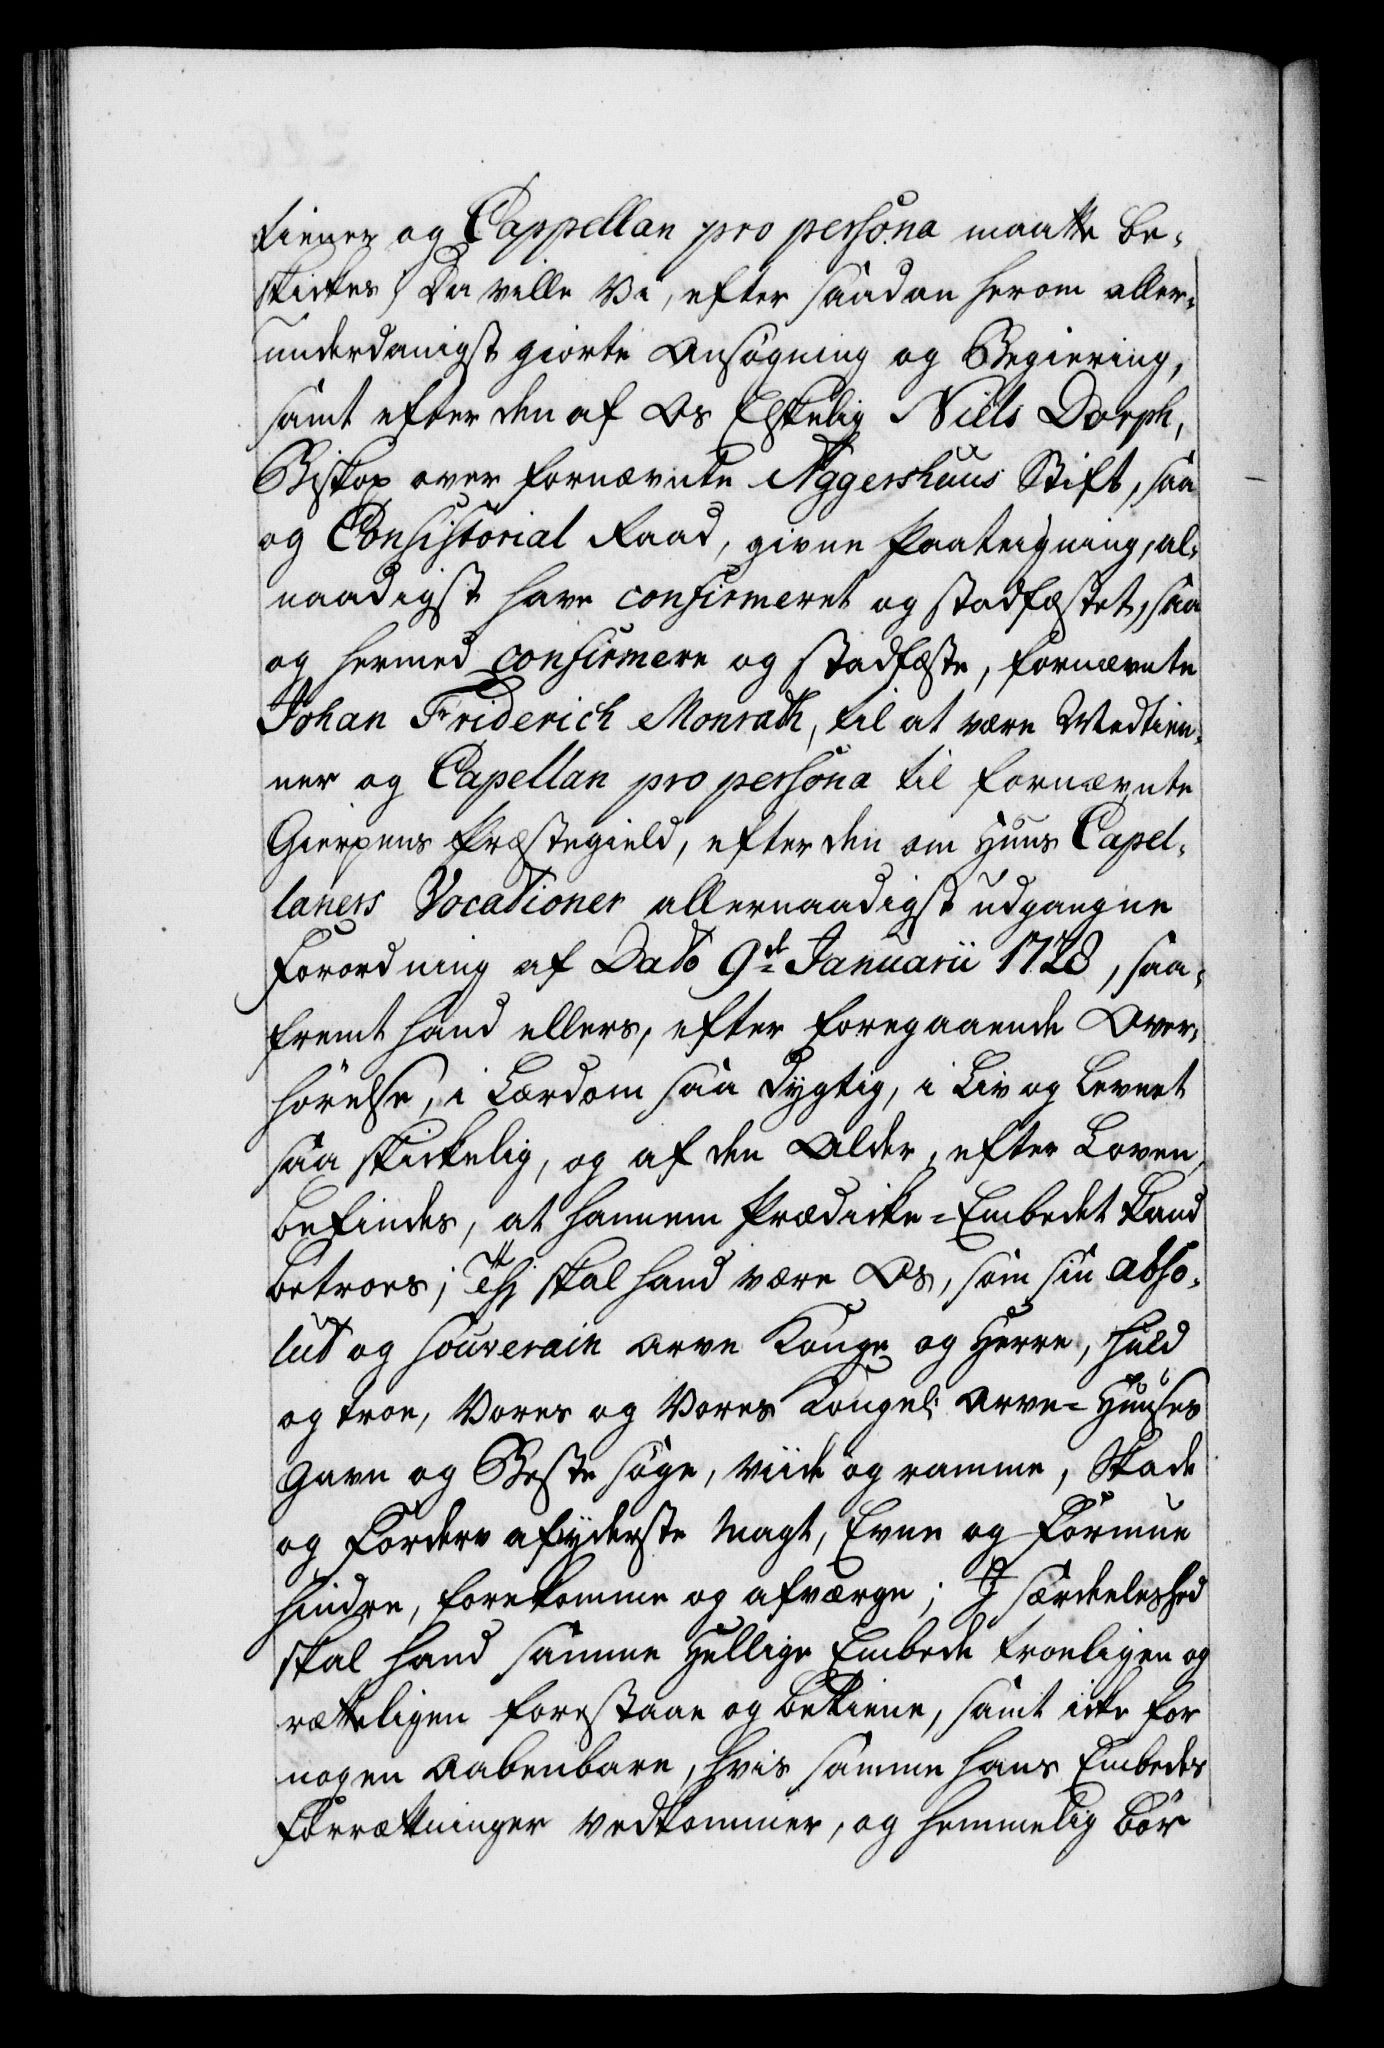 tiener og Cappellan pro persona maatte be-
skickes) Da ville Vi, efter saadan herom aller-
underdanigst giorte Ansøgning og Begiering,
samt efter den af Os Elskelig Niels Dorph,
Biskop over fornævnte Aggershuus Stift, saa
og Consistorial Raad, givne Paateigning, al-
naadigst have confirmeret og stadfæstet, saa
og hermed confirmere og stadfæste, fornævnte
Johan Friderich Monrath, til at være Medtien-
ner og Capellan pro persona til fornævnte
Gierpens Præstegield, efter den om Huus Capel-
laners Vocationer allernaadigst udgangne
Forordning af Dato 9de Januarii 1728, saa-
fremt hand ellers, efter foregaaende Over-
hørelse, i Lærdom saa dygtig, i Liv og Levnet
saa skickelig, og af den Alder, efter Loven,
befindes, at hannem Prædicke-Embedet kand
betroes; Thi skal hand være Os, som sin abso-
lut og souverain Arve Konge og Herre, huld
og troe, Vores og Vores Kongel: Arve-Huuses
Gavn og Beste søge, viide og ramme, Skade
og Forderv af yderste Magt, Evne og Formue
hindre, forekomme og afværge; I særdeleshed
skal hand samme Hellige Embede troeligen og
rætteligen forestaae og betiene, samt icke for
nogen aabenbare, hvis samme hans Embedes
Forrætninger vedkommer, og hemmelig bør